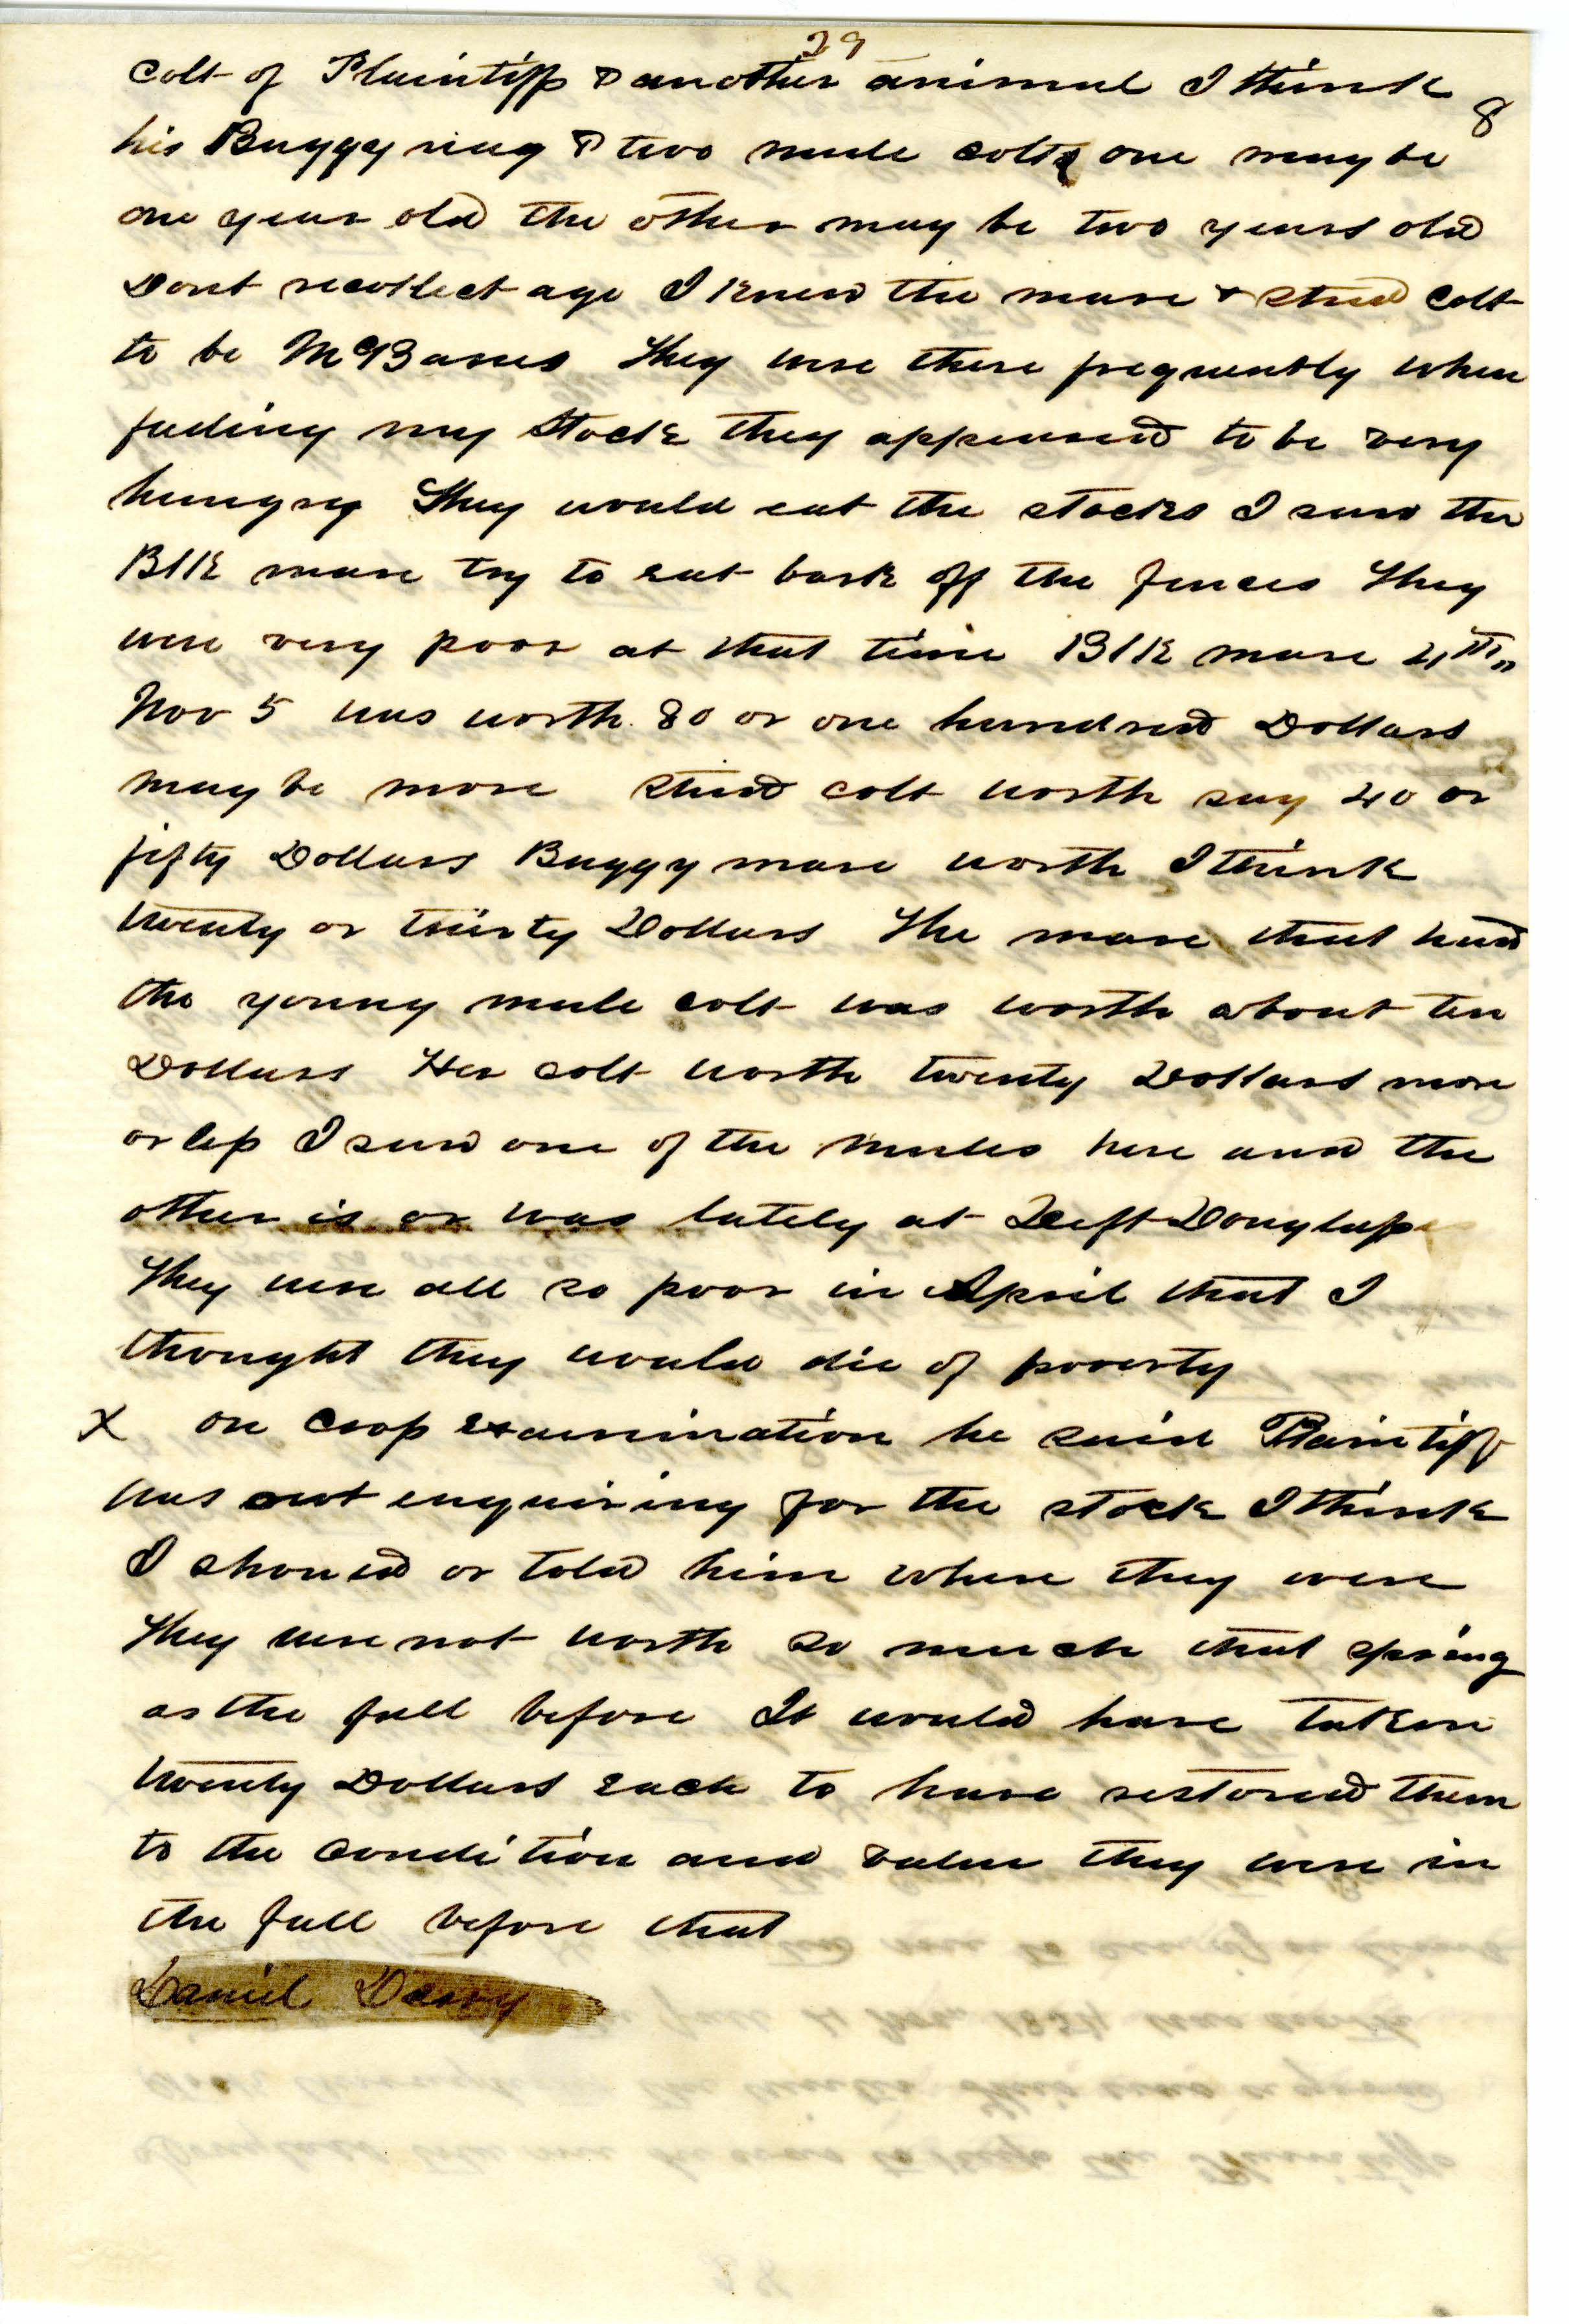 29
8
colt of Plaintiff & another animal I think
his Buggy nag & two mule colts one may be
one year old the other may be two years old
Dont recollect age I knew the mare & stud colt
to be McBanes They were there frequently when
feeding my stock they appeared to be very
hungry They would eat the stocks I saw the
Blk mare try to eat bark off the fences They
were very poor at that time Blk mare 4th
Nov 5 was worth 80 or one hundred Dollars
may be more Stud colt worth say 40 or
fifty Dollars Buggy mare worth I think
twenty or thirty Dollars The mare that had
the young mule colt was worth about ten
Dollars Her colt worth twenty Dollars more
or less I saw one of the mules here and the
other is or was lately at Deft Douglass
They were all so poor in April that I
thought they would die of poverty
X on cross examination he said Plaintiff
was out enquiring for the stock I think
I showed or told him where they were
They were not worth so much that spring
as the fall before It would have taken
twenty Dollars each to have restored them
to the condition and value they were in
the fall before that
Daniel Darry